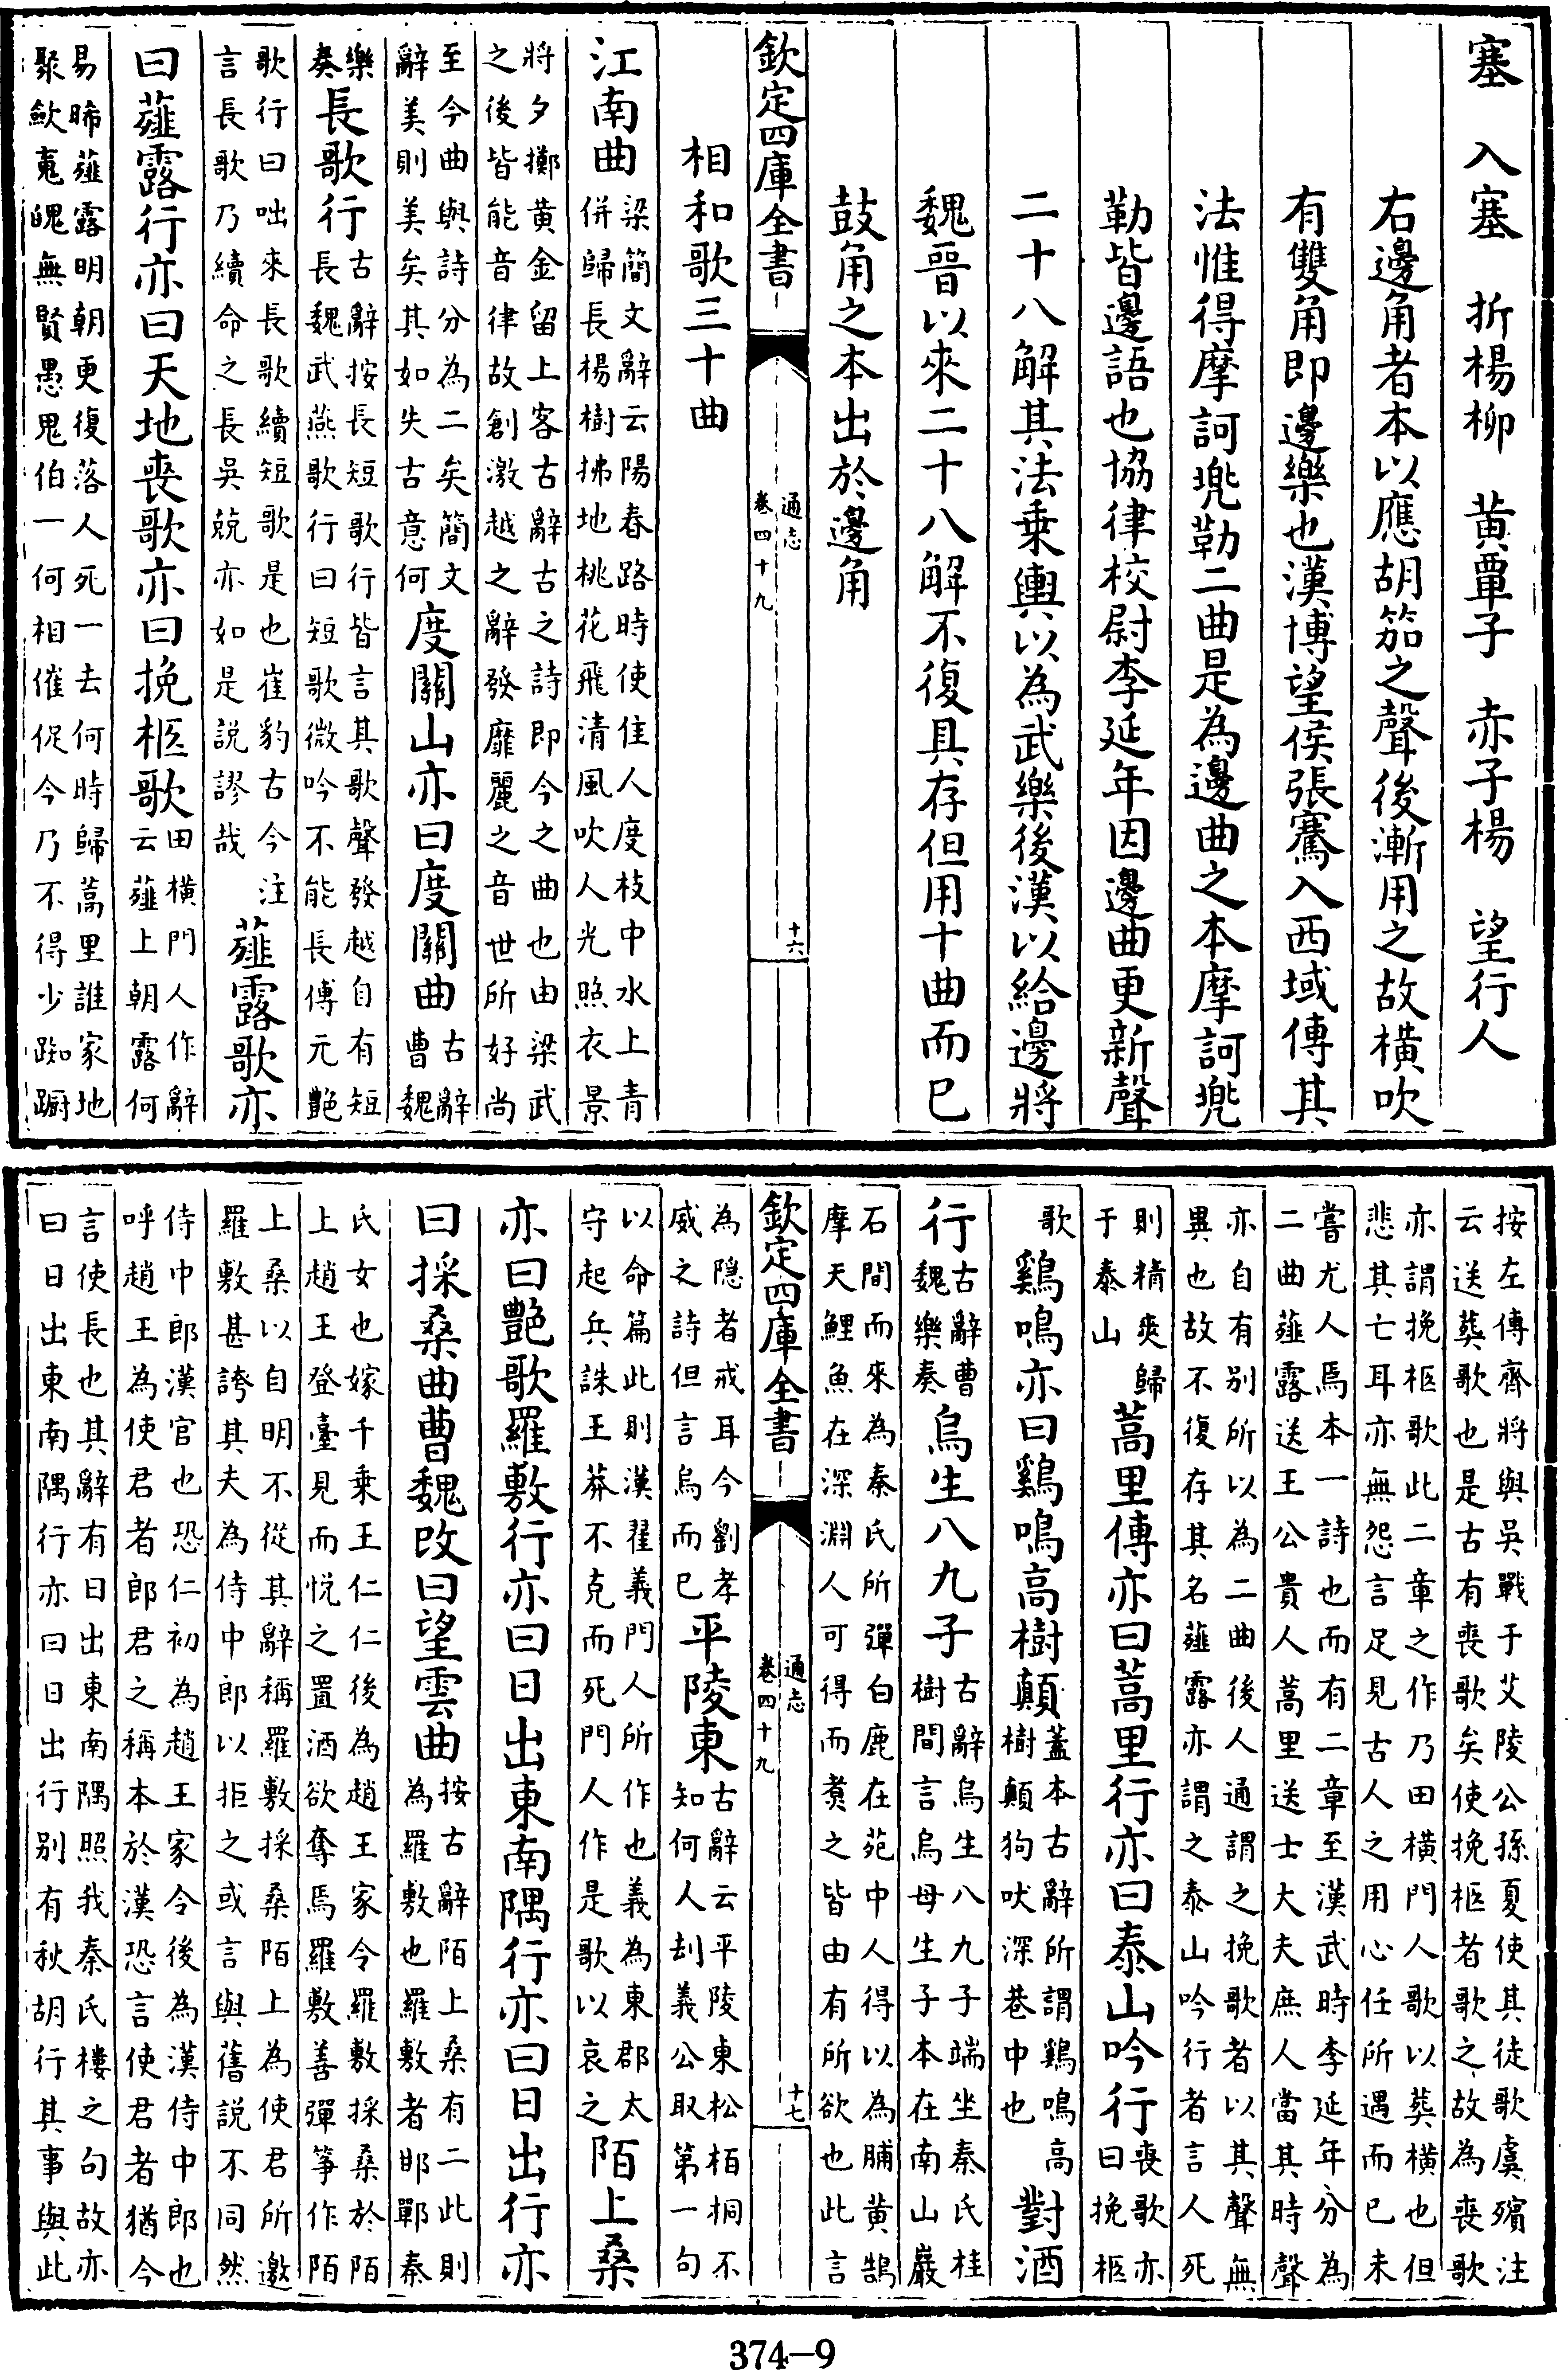 塞　入塞　折楊柳　黄覃子　赤子楊　望行人
右邊角者本以應胡笳之聲後漸用之故橫吹
有雙角即邊樂也漢博望侯張騫入西域傳其
法惟得摩訶兜勒二曲是為邊曲之本摩訶兜
勒皆邊語也協律校尉李延年因邊曲更新聲
二十八解其法乗輿以為武樂後漢以給邊將
魏晉以來二十八解不復具存但用十曲而已
鼓角之本出於邊角
欽定四庫全書
通志
卷四十九
十六
相和歌三十曲
江南曲
梁簡文辭云陽春路時使佳人度枝中水上青
併歸長楊樹拂地桃花飛清風吹人光照衣景
將夕擲黄金留上客古辭古之詩即今之曲也由梁武
之後皆能音律故創激越之辭發靡麗之音世所好尚
至今曲與詩分為二矣簡文
辭美則美矣其如失古意何
度關山亦曰度關曲
古辭
曹魏
樂
奏
長歌行
古辭按長短歌行皆言其歌聲發越自有短
長魏武燕歌行曰短歌微吟不能長傅元艶
歌行曰咄來長歌續短歌是也崔豹古今注
言長歌乃續命之長吳兢亦如是説謬哉
薤露歌亦
曰薤露行亦曰天地喪歌亦曰挽柩歌
田橫門人作辭
云薤上朝露何
易晞薤露明朝更復落人死一去何時歸蒿里誰家地
聚斂䰟魄無賢愚鬼伯一何相催促今乃不得少踟蹰
按左傳齊將與吳戰于艾陵公孫夏使其徒歌虞殯注
云送葬歌也是古有喪歌矣使挽柩者歌之故為喪歌
亦謂挽柩歌此二章之作乃田橫門人歌以葬橫也但
悲其亡耳亦無怨言足見古人之用心任所遇而已未
嘗尤人焉本一詩也而有二章至漢武時李延年分為
二曲薤露送王公貴人蒿里送士大夫庶人當其時聲
亦自有别所以為二曲後人通謂之挽歌者以其聲無
異也故不復存其名薤露亦謂之泰山吟行者言人死
則精爽歸
于泰山
蒿里傳亦曰蒿里行亦曰泰山吟行
喪歌亦
曰挽柩
歌
鷄鳴亦曰鷄鳴高樹顛
蓋本古辭所謂鷄鳴高
樹顛狗吠深巷中也
對酒
行
古辭曹
魏樂奏
烏生八九子
古辭烏生八九子端坐秦氏桂
樹間言烏母生子本在南山巖
石間而來為秦氏所彈白鹿在苑中人得以為脯黄鵠
摩天鯉魚在深淵人可得而煑之皆由有所欲也此言
欽定四庫全書
通志
卷四十九
十七
為隠者戒耳今劉孝
威之詩但言烏而已
平陵東
古辭云平陵東松栢桐不
知何人刦義公取第一句
以命篇此則漢翟義門人所作也義為東郡太
守起兵誅王莽不克而死門人作是歌以哀之
陌上桑
亦曰艶歌羅敷行亦曰日出東南隅行亦曰日出行亦
曰採桑曲曹魏改曰望雲曲
按古辭陌上桑有二此則
為羅敷也羅敷者邯鄲秦
氏女也嫁千乗王仁仁後為趙王家令羅敷採桑於陌
上趙王登臺見而悦之置酒欲奪焉羅敷善彈箏作陌
上桑以自明不從其辭稱羅敷採桑陌上為使君所邀
羅敷甚誇其夫為侍中郎以拒之或言與舊説不同然
侍中郎漢官也恐仁初為趙王家令後為漢侍中郎也
呼趙王為使君者郎君之稱本於漢恐言使君者猶今
言使長也其辭有日出東南隅照我秦氏樓之句故亦
曰日出東南隅行亦曰日出行别有秋胡行其事與此
374-9